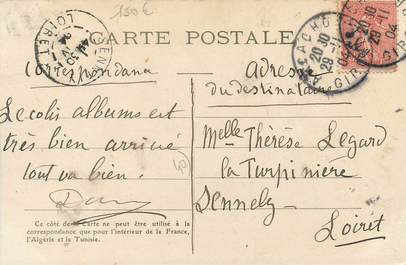 150€
CARTE POSTALE
Correspondance
Adresse
du destinataire
Le colis albums est
très bien arrivé
tout va bien.
Melle Thérèse Legard
la Turpinière
Sennely
Loiret
Ce côté de la Carte ne peut être utilisé à la
correspondance que pour l'intérieur de la France,
l'Algérie et la Tunisie.
SENNELY
LOIRET
ARCACHON
20-10
28-11
04
GIRONDE